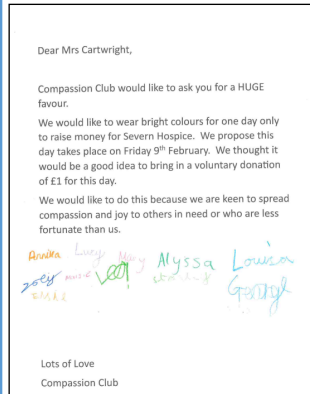 Dear Mrs Cartwright,
Compassion Club would like to ask you for a HUGE
favour.
We would like to wear bright colours for one day only
to raise money for Severn Hospice. We propose this
day takes place on Friday 9th February. We thought it
would be a good idea to bring in a voluntary donation
of £1 for this day.
We would like to do this because we are keen to spread
compassion and joy to others in need or who are less
fortunate than us.
Annika Lucy Mary Alyssa Louisa
Zoey George
Lots of Love
Compassion Club